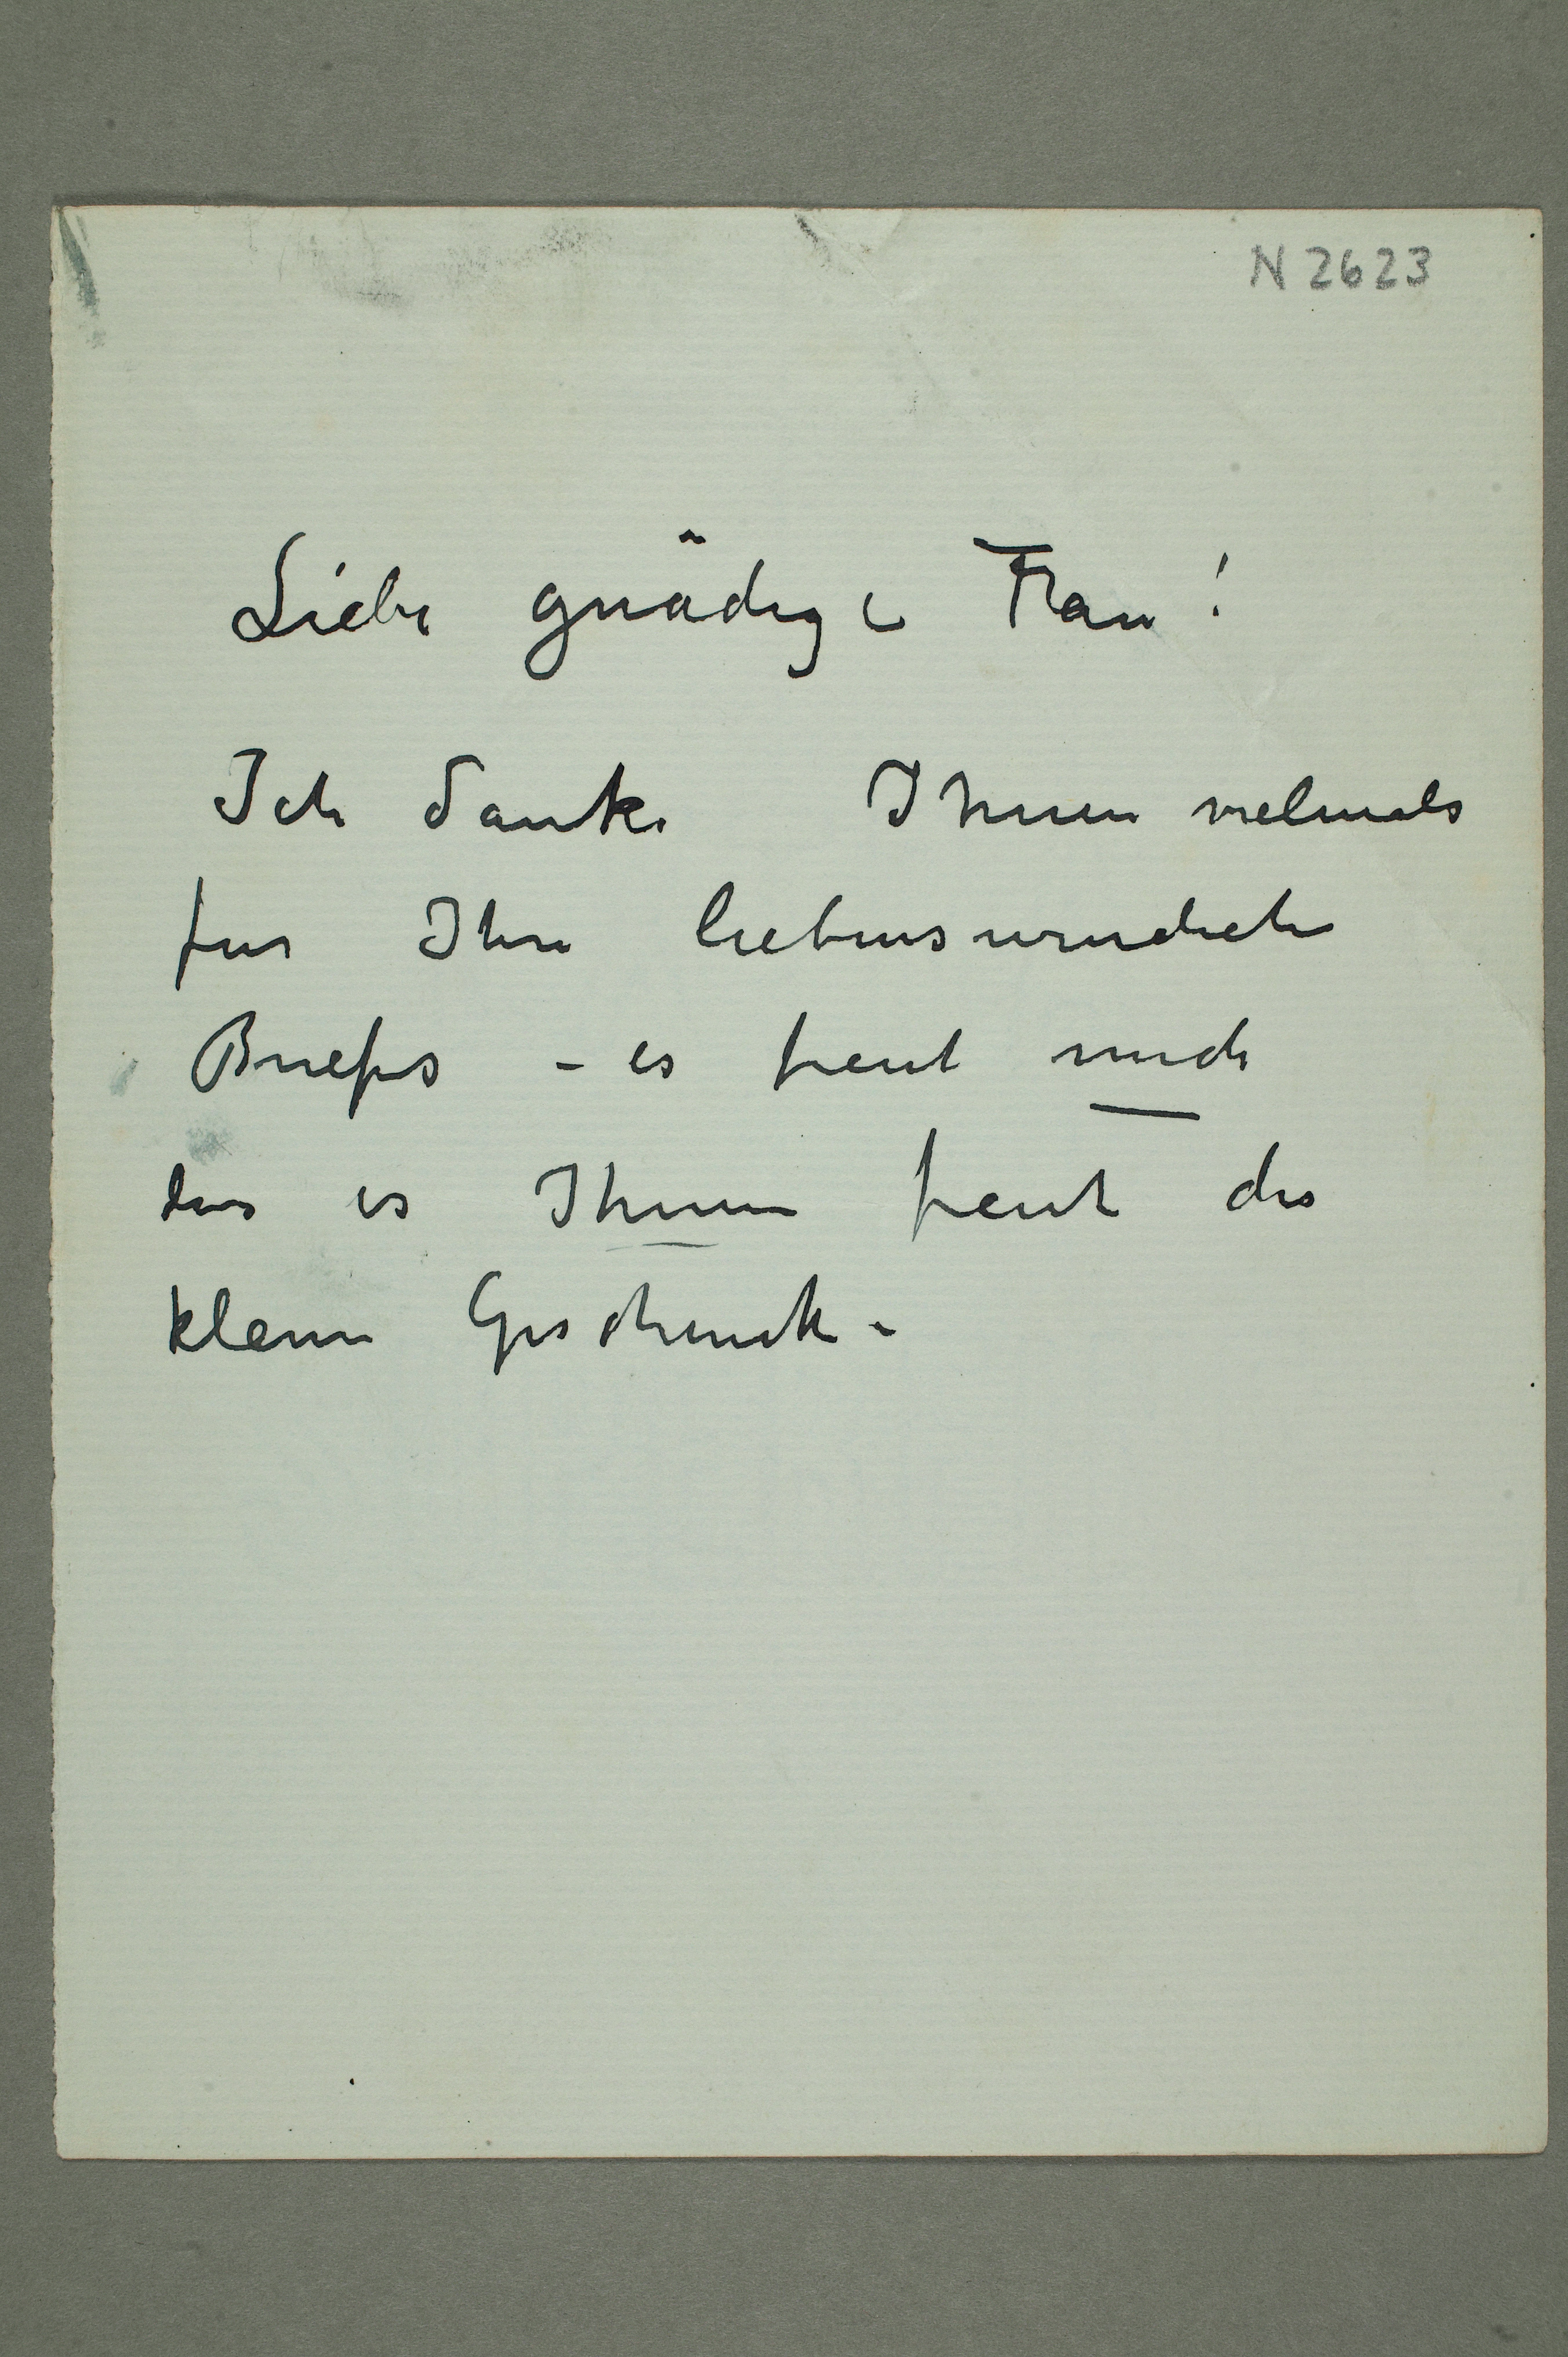 N 2623
Liebe gnädige Frau!
Ich danke Ihnen vielmals
fur Ihre
Briefes - es freut mich
das es Ihnen freut das
kleine Geschenk -